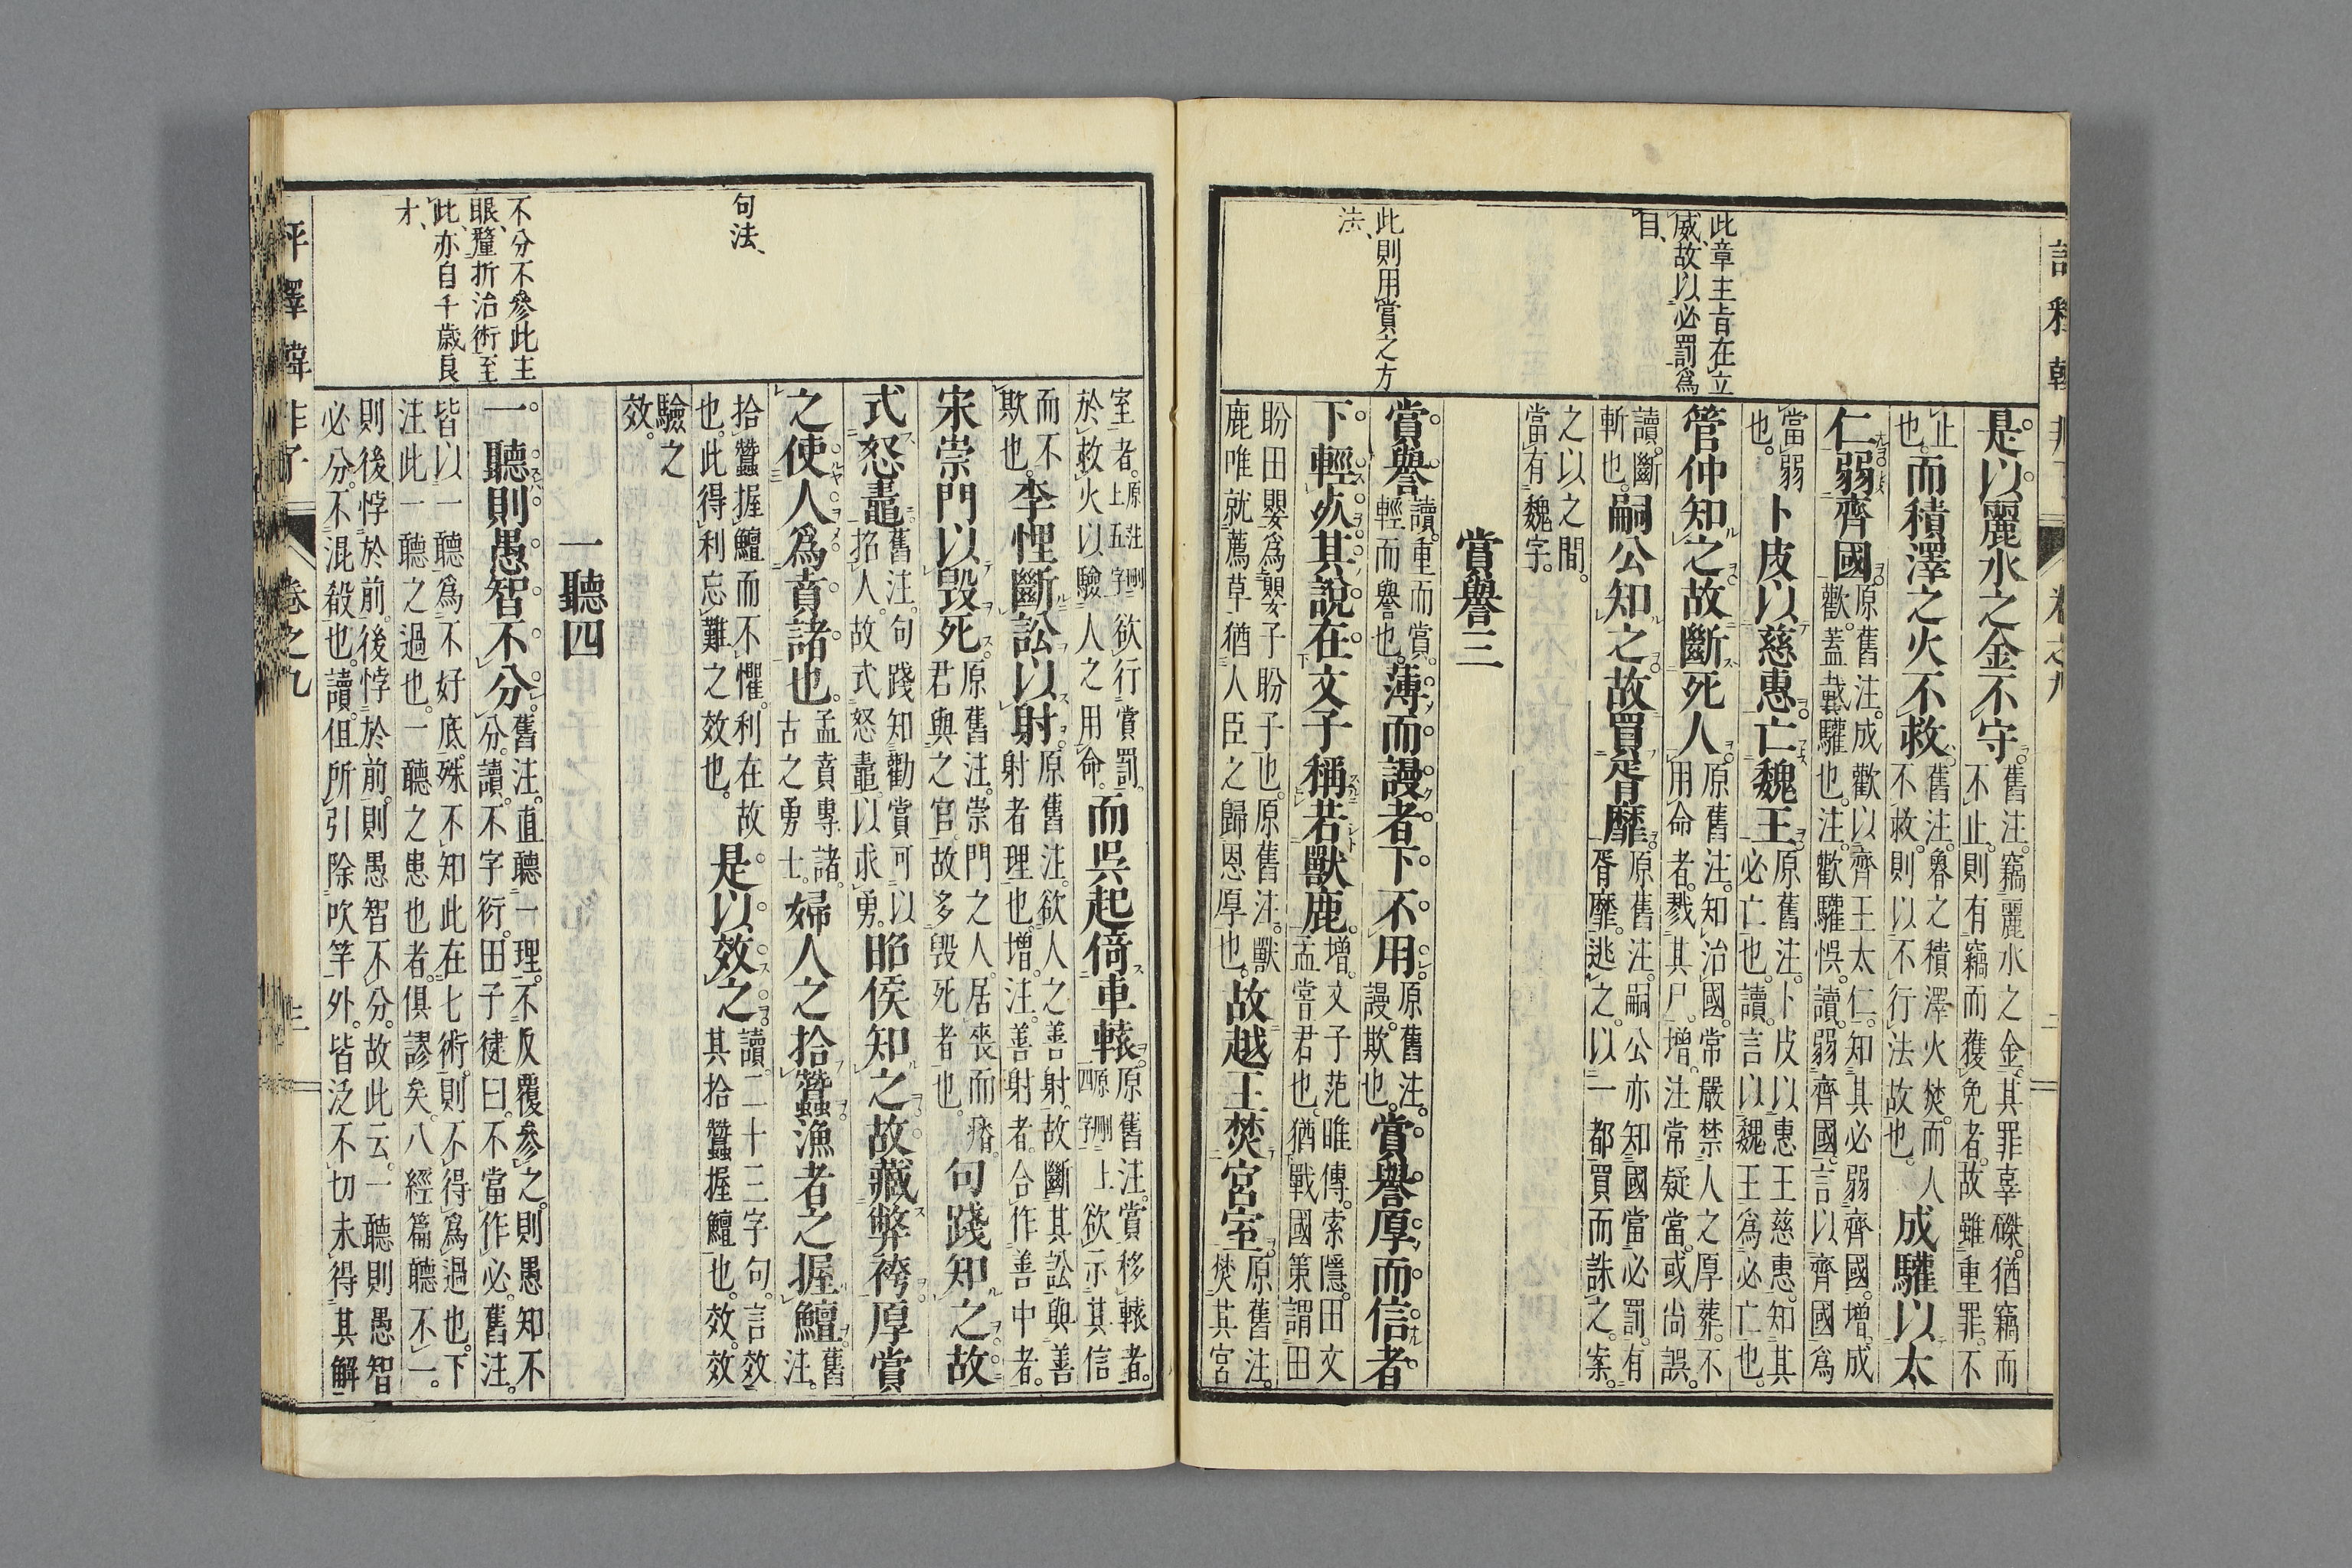 此章主旨在立
威、故以必罰爲
目、
此則用賞之方
法、
是以麗水之金不守。舊注。竊麗水之金。其罪辜磔。猶竊而
不止。則有竊而獲免者。故雖重罪。不
止也。而積澤之火不救。舊注。魯之積澤火焚。而人
不救。則以不行法故也。成驩以太
仁弱齊國。原舊注。成歡以齊王太仁。知其必弱齊國。增。成
歡。蓋戴驩也。注。歡驩悞。讀。弱齊國。言以齊國爲
當弱也。卜皮以慈惠亡魏王。原舊注。卜皮以惠王慈惠。知其
必亡也。讀。言以魏王爲必亡也。
管仲知之。故斷死人。原舊注。知治國。常嚴禁人之厚葬。不
用命者。戮其尸。增。注常疑當。或尙誤。
讀。斷斬也。嗣公知之。故買胥靡。原舊注。嗣公亦知國當必罰。有
胥靡。逃之。以一都買而誅之。案。
之以之間。
當有魏字。
賞譽三
賞譽讀。重而賞。輕而譽也。薄而謾者。下不用。原舊注。謾。欺也。賞譽厚而信者
下輕死。其說在文子稱若獸鹿。增。文子。范睢傳。索隱。田文
孟嘗君也。猶戰國策謂田
盼田嬰爲嬰子盼子也。原舊注。獸
鹿唯就薦草。猶人臣之歸恩厚也。故越王焚宮室。原舊注。
焚其宮
卷之九
二
句法、
不分不參此主
眼、釐折治術至
此、亦自千歲良
才、
室者。原注上五字删欲行賞罰。
於救火以驗人之用命。而吳起倚車轅。原舊注。賞移轅者。
原删四字上欲示其信
而不欺也。李悝斷訟以射。原舊注。欲人之善射。故斷其訟與善
射者理也。增。注。善射者。合作善中者。
宋崇門以毀死。原舊注。崇門之人。居喪而瘠。
君與之官。故多毀死者也。句踐知之。故
式怒鼃。舊注。句踐知勸賞可以
招人。故式怒鼃。以求勇。昭侯知之。故藏弊袴。厚賞
之使人爲賁諸也。孟賁專諸。
古之勇士。婦人之拾蠶。漁者之握鱣。舊
注。
拾蠶握鱣而不懼。利在故
也。此得利忘難之效也。是以效之。讀。二十三字句。言效
其拾蠶握鱣也。效。效
驗之
效。
一聽四
一聽則愚智不分。舊注。直聽一理。不反覆參之。則愚知不
分。讀。不字衍。田子徤曰。不當作必。舊注。
皆以一聽爲不好底。殊不知此在七術。則不得爲過也。下
注此一聽之過也。一聽之患也者。俱謬矣。八經篇聽不一。
則後悖於前。後悖於前。則愚智不分。故此云。一聽則愚智
必分。不混殽也。讀。但所引除吹竿外。皆泛不切。未得其解
評釋韓非子
卷之九
三